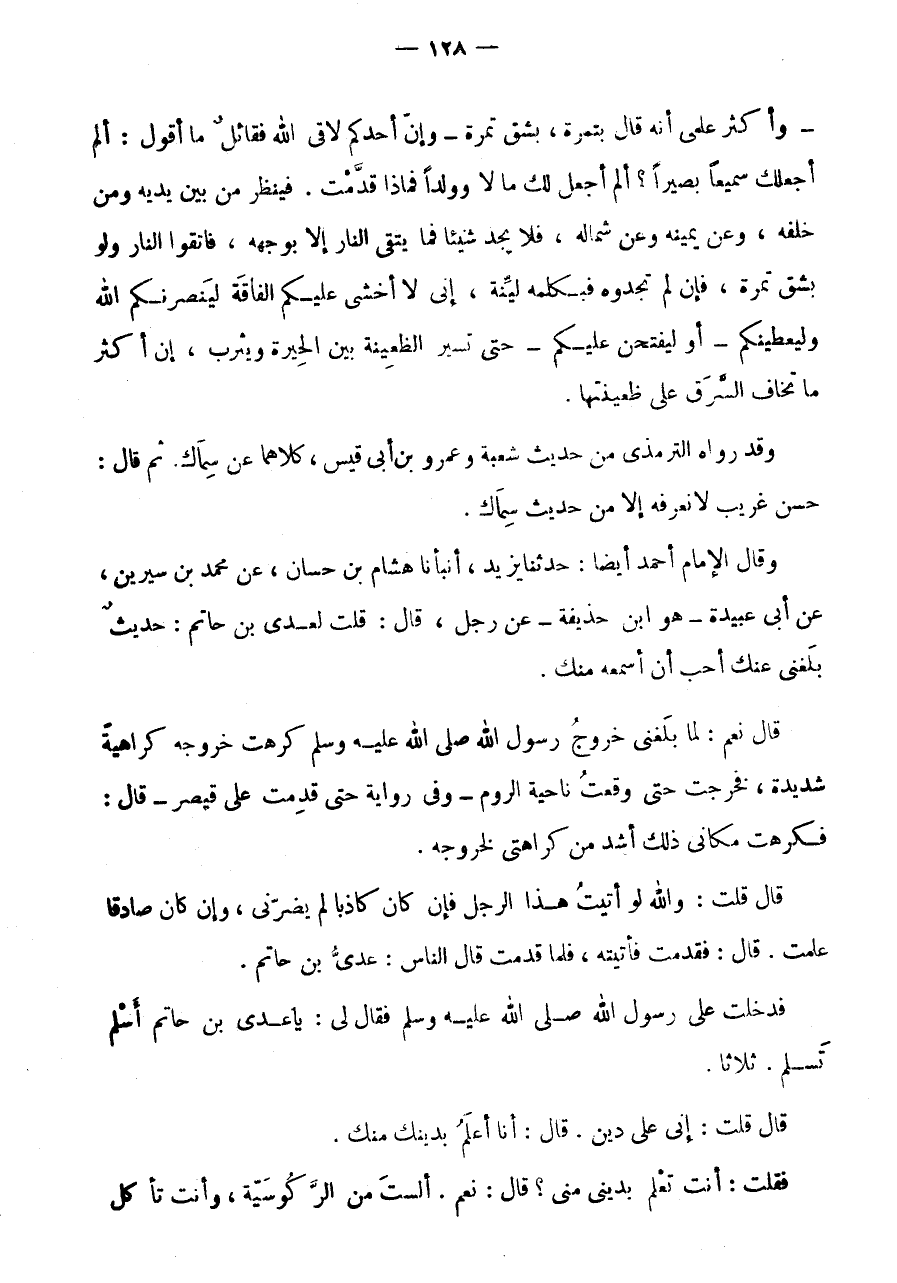 — ١٢٨ —
ـ وأكثر علمى أنه قال بتمرة ، بشق تمرة ـ وإنّ أحدكم لاقى الله فقائلٌ ما أقول : ألم
أجعلك سميعاً بصيراً ؟ ألم أجعل لك مالا وولداً فماذا قدَّمْت . فينظر من بين يديه ومن
خلفه ، وعن يمينه وعن شماله ، فلا يجد شيئا فما يتقى النار إلا بوجهه ، فاتقوا النار ولو
بشق تمرة ، فإن لم تجدوه فبكلمه ليّنة ، إنى لا أخشى عليكم الفاقَة ليَنصرنكم الله
وليعطينكم ـ أو ليفتحن عليكم ـ حتى تسير الظعِينة بين الحِيرة ويثرب ، إن أكثر
ما تخاف السَّرَق على ظعينتها .
وقد رواه الترمذى من حديث شعبة وعمرو بن أبى قيس ، كلاهما عن سِمَاك. ثم قال :
حسن غريب لا نعرفه إلا من حديث سِمَاك .
وقال الإمام أحمد أيضا : حدثنا يزيد ، أنبأنا هشام بن حسان ، عن محمد بن سيرين ،
عن أبى عبيدة ـ هو ابن حذيفة ـ عن رجل ، قال : قلت لعدى بن حاتم : حديثٌ
بلَغنى عنك أحب أن أسمعه منك .
قال نعم : لما بلَغنى خروجُ رسول الله صلى الله عليه وسلم كرهت خروجه كراهيةً
شديدة ، فخرجت حتى وقعتُ ناحية الروم ـ وفى رواية حتى قدِمت على قيصر ـ قال :
فكرهت مكانى ذلك أشد من كراهتى لخروجه .
قال قلت : والله لو أتيتُ هذا الرجل فإن كان كاذبا لم يضرّنى ، وإن كان صادقا
علمت . قال : فقدمت فأتيته ، فلما قدمت قال الناس : عدىُّ بن حاتم .
فدخلت على رسول الله صلى الله عليه وسلم فقال لى : ياعدى بن حاتم أَسْلم
تَسلم . ثلاثا .
قال قلت : إنى على دين . قال : أنا أعلَمُ بدينك منك .
فقلت : أنت تعْلم بدينى منى ؟ قال : نعم . ألستَ من الرَّكُوسَيّة ، وأنت تأكل